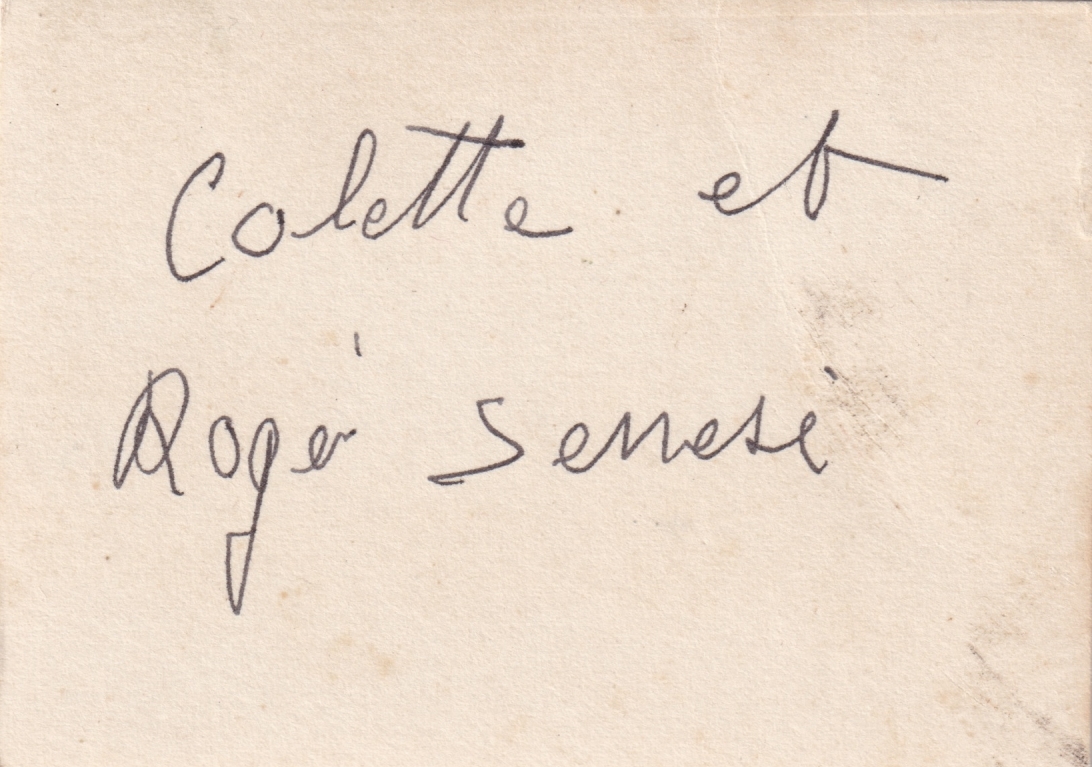 Colette et
Roger Senesi